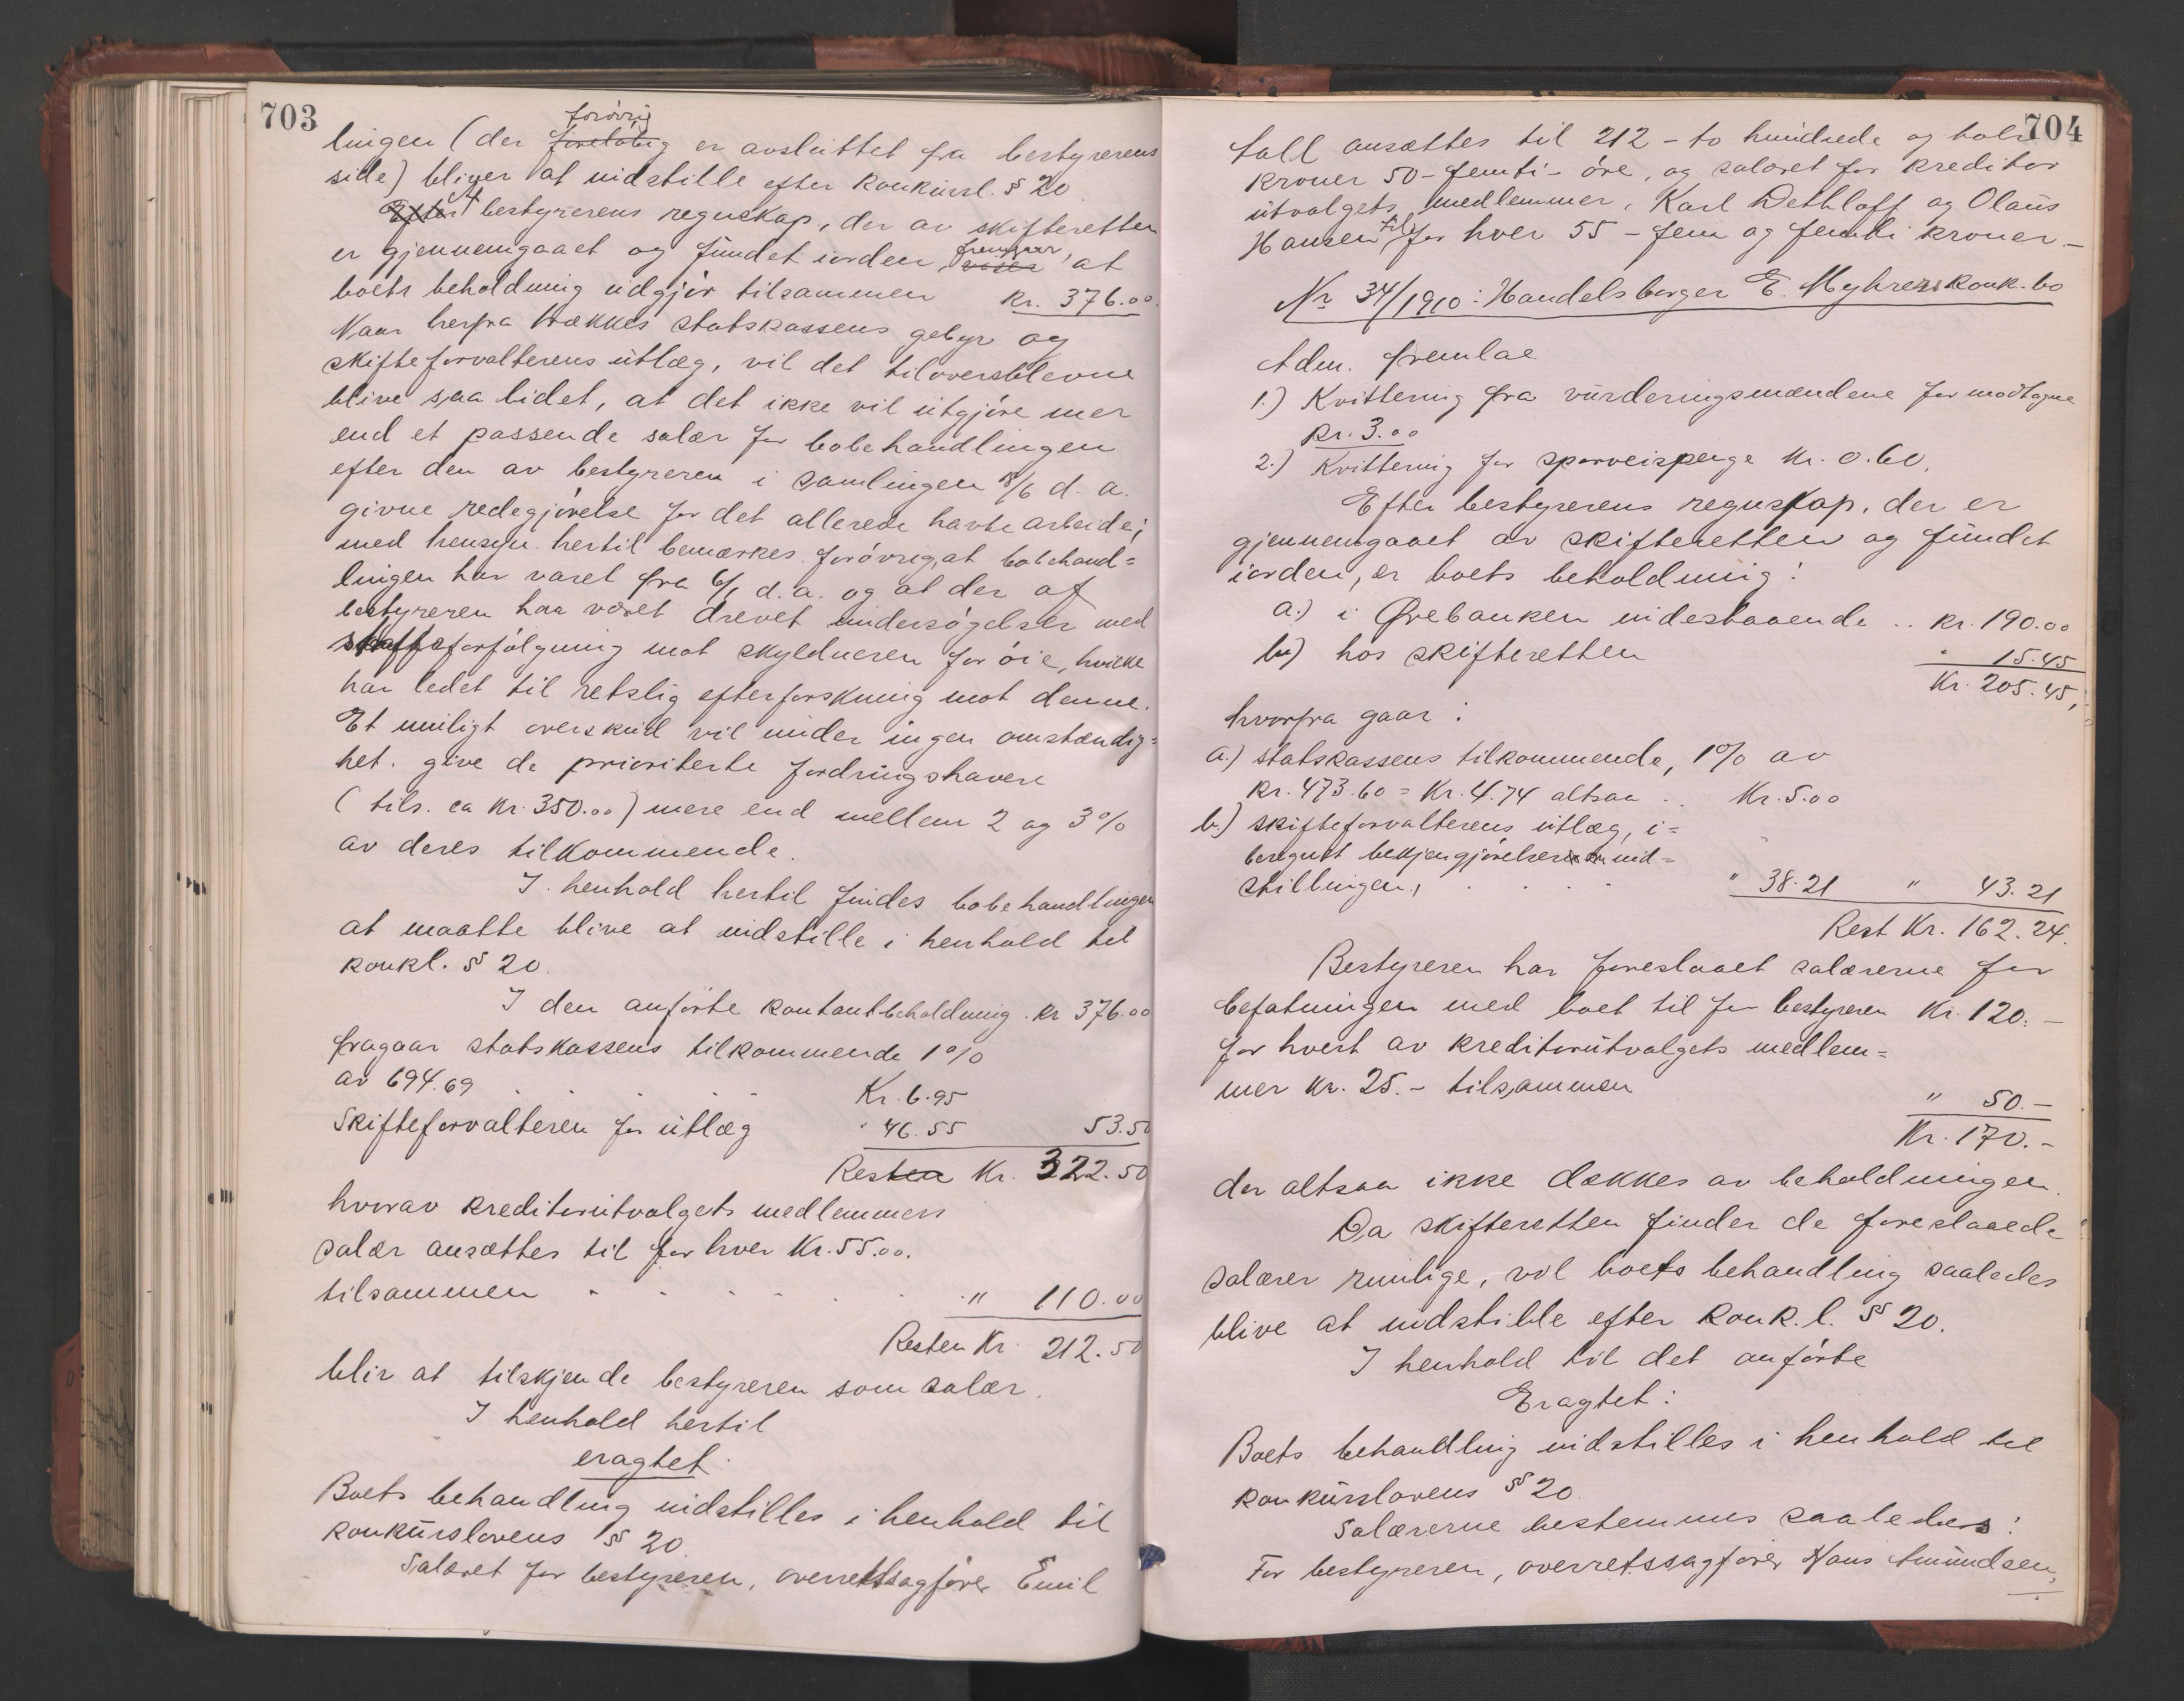 703
forøvrig
lingen (der foreløbig er avsluttet fra bestyrerens
side) bliver at indstille efter konkursl. § 20
Efter Af bestyrerens regnskap, der av skifteretten
er gjennemgaaet og fundet iorden, viser fremgaar, at
boets beholdning udgjør tilsammen kr. 376.00.
Naar herfra trækkes statskassens gebyr og
skifteforvalterens utlæg, vil det tiloversblevne
blive saa lidet, at det ikke vil utgjøre mer
end et passende salær for bobehandlingen
efter den av bestyreren i samlingen 18/6 d. a.
givne redegjørelse for det allerede havte arbeide;
med hensyn hertil bemærkes forøvrig, at bobehand=
lingen har varet fra 6/1 d. a. og at der af
bestyreren har været drevet undersøgelser med
straffeforfølgning mot skyldneren for øie, hvilke
har ledet til retslig efterforskning mot denne.
Et muligt overskud vil under ingen omstændig=
het give de prioriterte fordringshavere
(tils. ca kr. 350.00) mere end mellem 2 og 3 %
av deres tilkommende.
I henhold hertil findes bobehandlingen
at maatte blive at indstille i henhold til
konkl. § 20.
I den anførte kontantbeholdning . kr 376.00
fragaar statskassens tilkommende 1 %
av 694.69 . . . Kr. 6.95
Skifteforvalteren for utlæg " 46.55 53.50
Resten Kr. 322.50
hvorav kreditorutvalgets medlemmers
salær ansættes til for hver Kr. 55.00.
tilsammen . . . . . . " 110.00
Resten Kr. 212.50
blir at tilskjende bestyreren som salær.
I henhold hertil
eragtet:
Boets behandling indstilles i henhold til
konkurslovens § 20.
Salæret for bestyreren, overretssagfører Emil
704
Fall ansættes til 212 - to hundrede og tolv
kroner 50 - femti - øre, og salæret for kreditor
utvalgets medlemmer, Karl Dethloff og Olaus
Hansen til for hver 55 - fem og femti kroner -
Nr 34/1910: Handelsborger E. Myhres konk.bo
Adm. fremlae
1.) Kvittering fra vurderingsmændene for modtagne
kr. 3.00
2.) Kvittering for sporveispenge kr. 0.60.
Efter bestyrerens regnskap, der er
gjennemgaaet av skifteretten og fundet
iorden, er boets beholdning:
a.) i Ørebanken indestaaende .. kr. 190.00
b.) hos skifteretten " 15.45
Kr. 205.45,
hvorfra gaar:
a.) statskassens tilkommende, 1 % av
kr. 473.60 = Kr. 4.74 altsaa .. Kr. 5.00
b.) skifteforvalterens utlæg, i=
beregnet bekjengjørelsen om ind=
stillingen, . . . " 38.21 " 43.21
Rest Kr. 162.24.
Bestyreren har foreslaaet salærerne for
befatningen med boet til for bestyreren Kr. 120.-
for hvert av kreditorutvalgets medlem=
mer kr. 25.- tilsammen " 50.-
Kr. 170.-
der altsaa ikke dækkes av beholdningen.
Da skifteretten finder de foreslaaede
salærer rimlige, vil boets behandling saaledes
blive at indstille efter konk.l. § 20.
I henhold til det anførte
Eragtet:
Boets behandling indstilles i henhold til
konkurslovens § 20.
Salærerne bestemmes saaledes:
For bestyreren, overretssagfører Hans Amundsen,